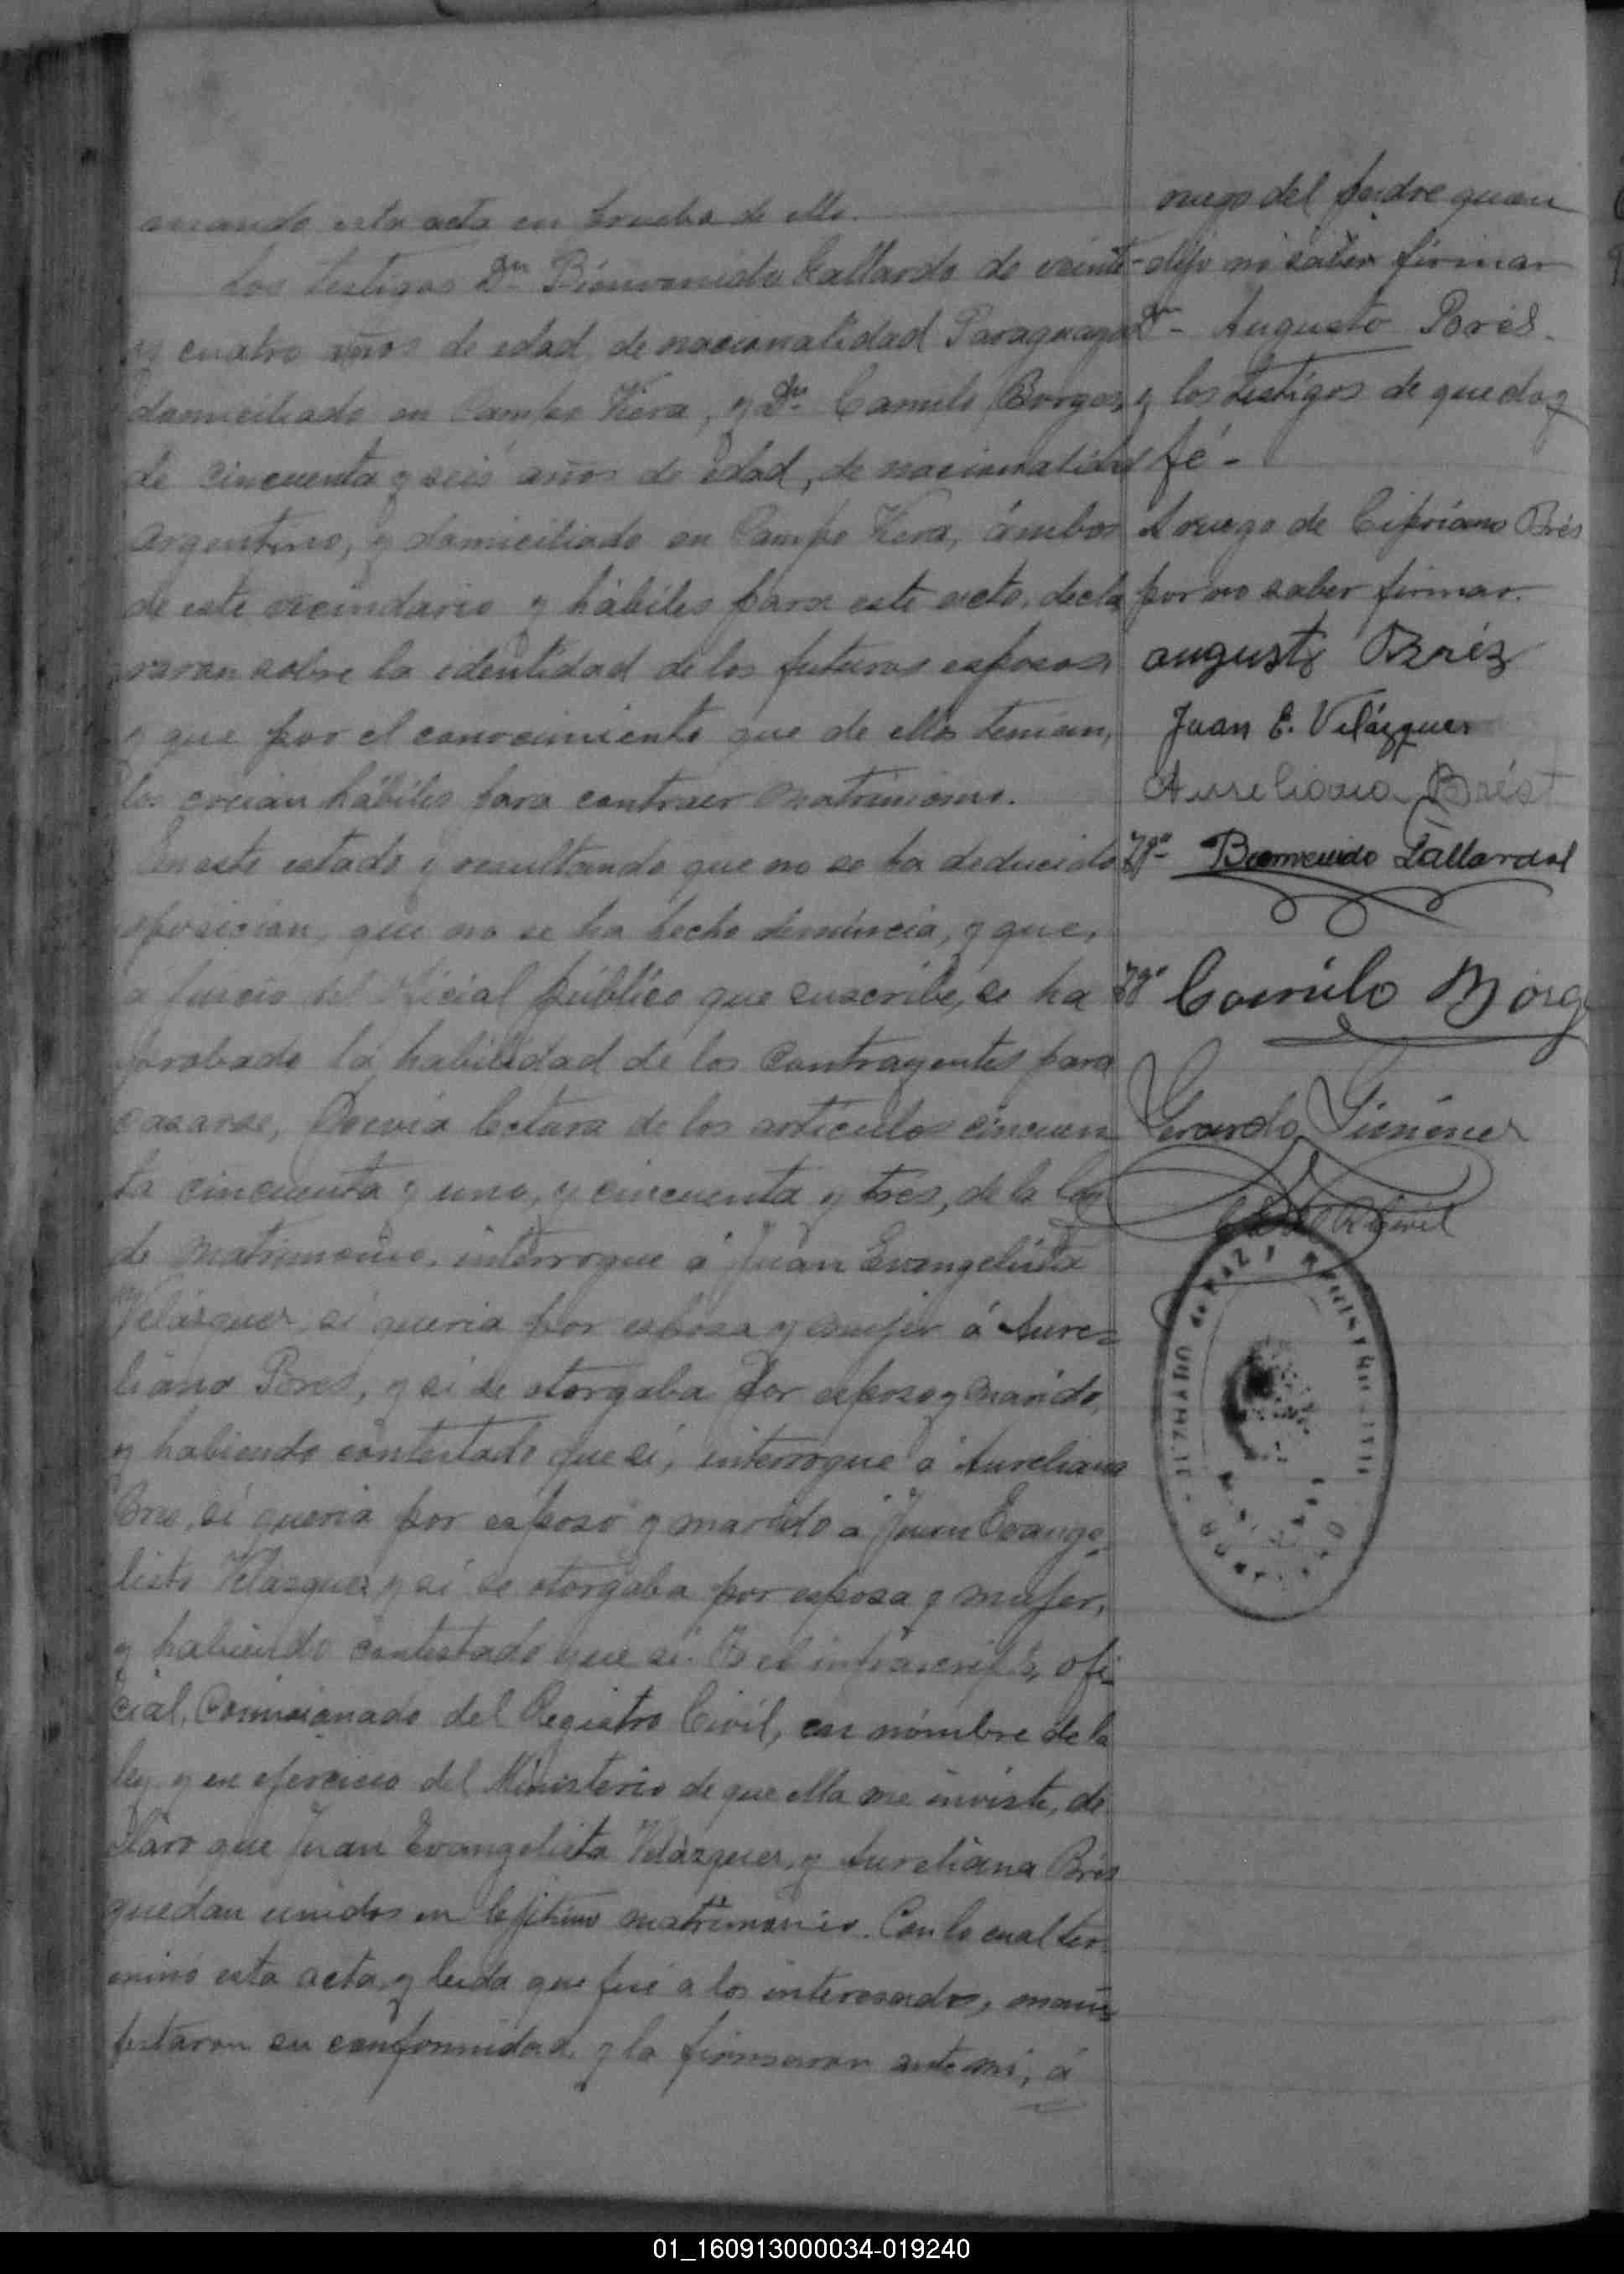 amando esta acta en prueba de ello.
Los testigos Dn Bienvenido Gallardo de veinte
y cuatro años de edad, de nacionalidad Paraguaya
domiciliado en Campo Viera, y Dn Camilo Borges,
de cincuenta y seis años de edad, de nacionalidad
argentino, y domiciliado en Campo Viera, ámbos
de este vecindario y hábiles para este acto, decla
raran sobre la identidad de los futuros esposos,
y que por el conocimiento que de ellos tenian,
los creian hábiles para contraer matrimonio.
En este estado y resultando que no se ha deducido
oposicion, que no se ha hecho denuncia, y que,
a juicio del oficial público que suscribe, se ha
probado la habilidad de los contrayentes para
casarse, Previa lectura de los artículos cincuen
ta cincuenta y uno, y cincuenta y tres, de la ley
de matrimonio, interrogue á Juan Evangelista
Velázquez, si queria por esposa y mujer á Aure=
liana Bres, y si se otorgaba por esposo y marido,
y habiendo contestado que sí, interrogue á Aureliana
Bres, si queria por esposo y marido a Juan Evange-
lista Velazquez y si se otorgaba por esposa y mujer,
y habiendo contestado que si. Yo el infrascripto, ofi-
cial, Comisionado del Registro Civil, en nómbre de la
ley y en ejercicio del Ministerio de que ella me inviste, de
claro que Juan Evangelista Velázquez, y Aureliana Bres
quedan unidos en lejitimo matrimonio. Con lo cual ter
minó esta acta y leida que fué a los interesados, manis
festaron su conformidad, y la firmaron ante mi, á
ruego del padre quien
dijo no saber firmar
Dn- Augusto Brés-
y los testigos de que doy
fé-
A ruego de Cipriano Brés
por no saber firmar.
augusto Bréz
Juan E. Velázquez
Aureliana Brést
Tgo- Bienvenido Gallardol
Tgo Camilo Borg
Gerardo Gimenez
R Civil